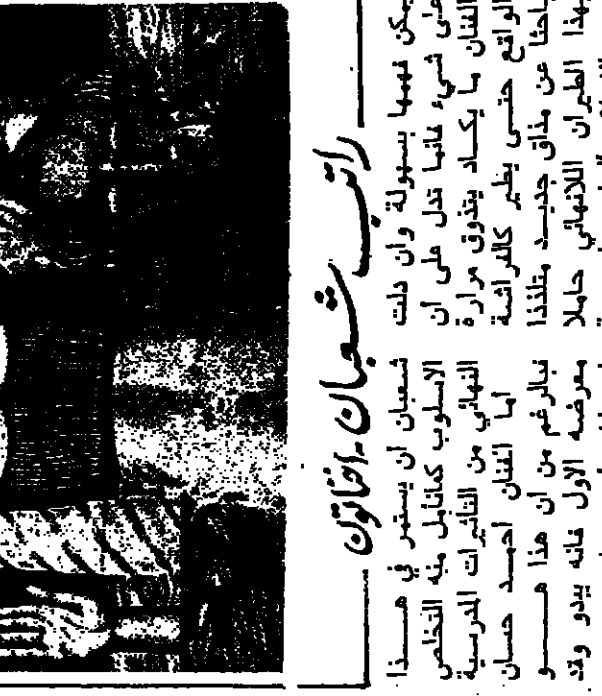 راتب شعبان - اخناتون
يمكن فهمها بسهولة وان دلت
على شيء فانها تدل على ان
الفنان ما يكاد يتذوق مرارة
الواقع حتى يطير كالفراشة
باحثا عن مذاق جديد متلذذا
بهذا الطيران اللانهائي حاملا
شعبان ان يستمر في هذا
الاسلوب كمانأمل منه التخلص
النهائي من التاثيرات المدرسية
اما الفنان احمد حسان
فبالرغم من ان هذا هو
معرضه الاول فانه يبدو وقد